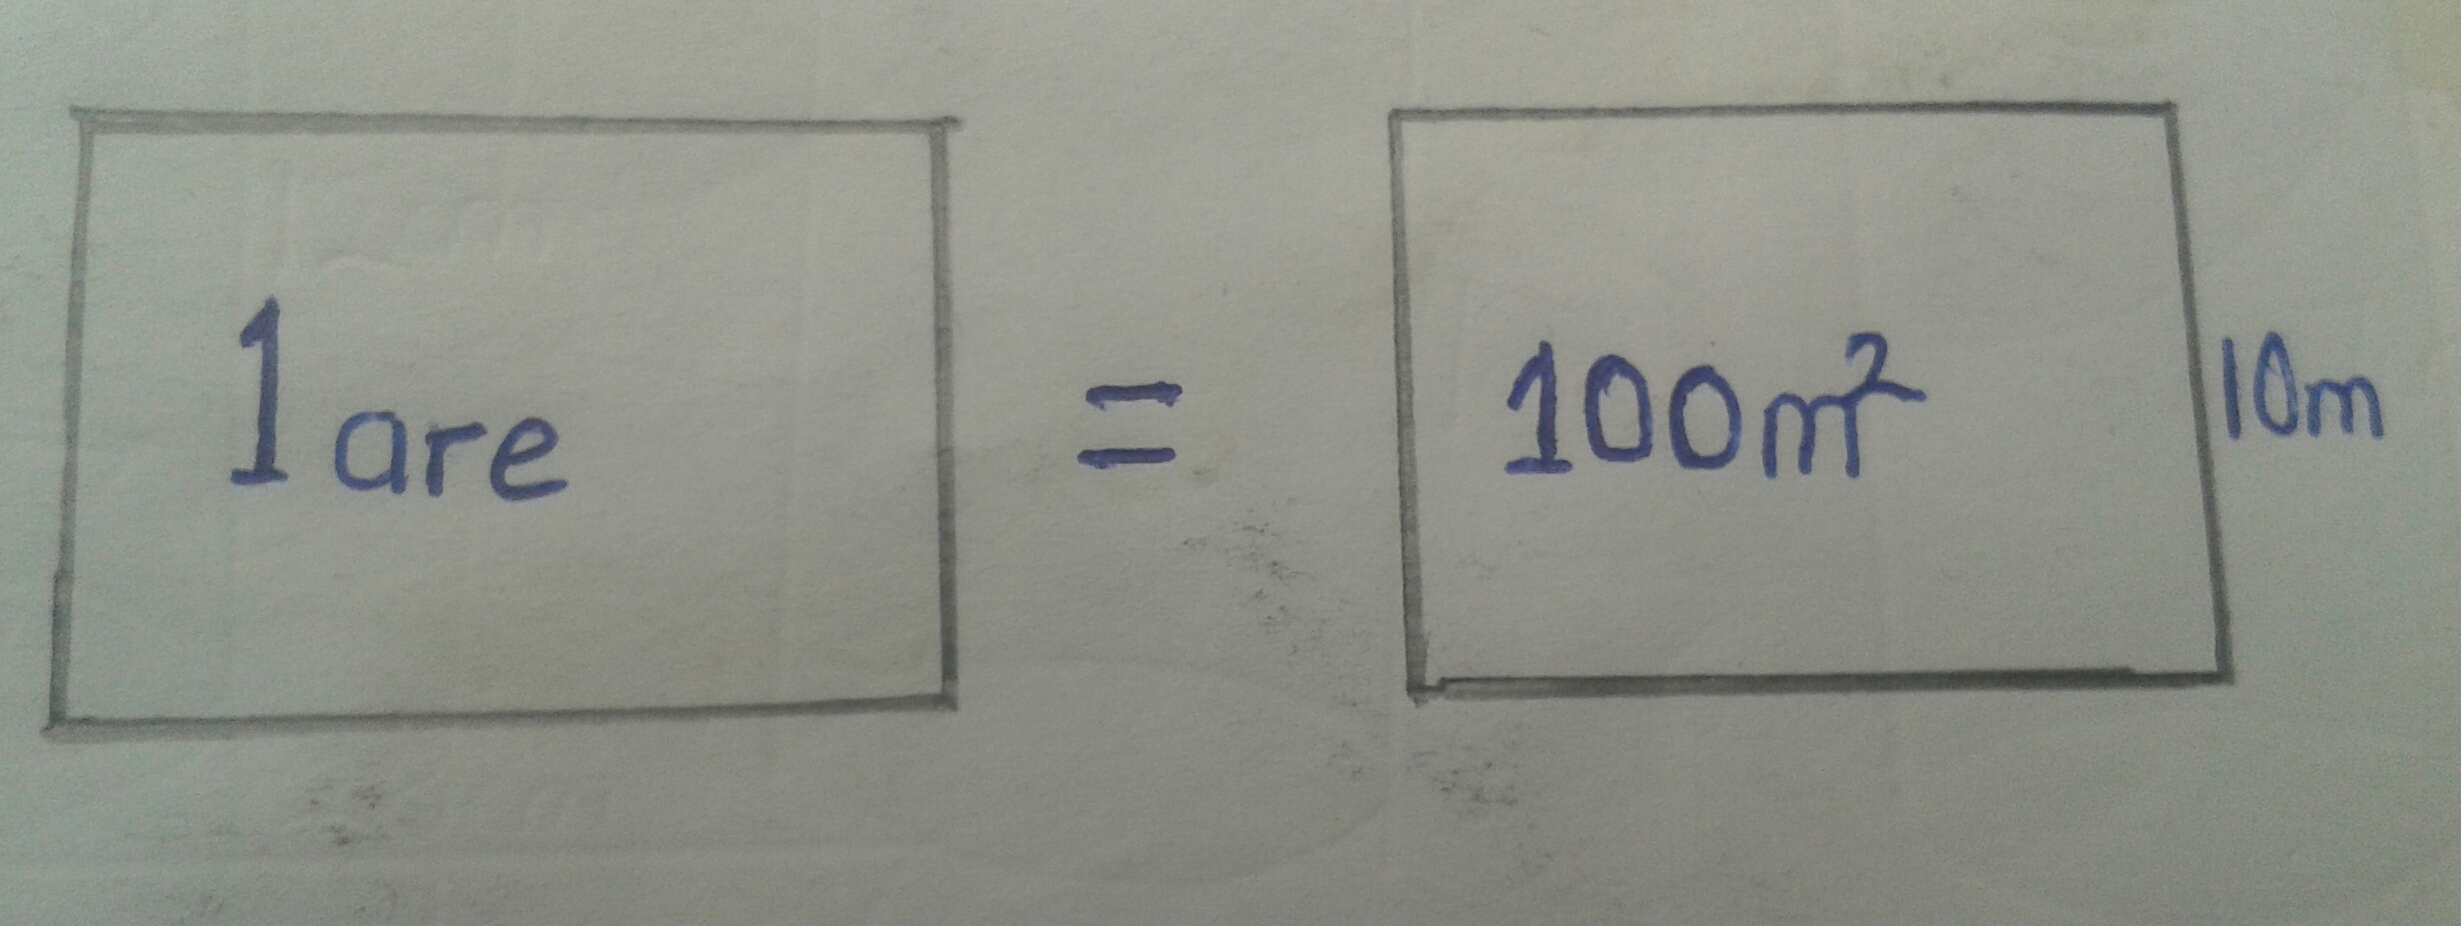 1 are = 100m² 10m